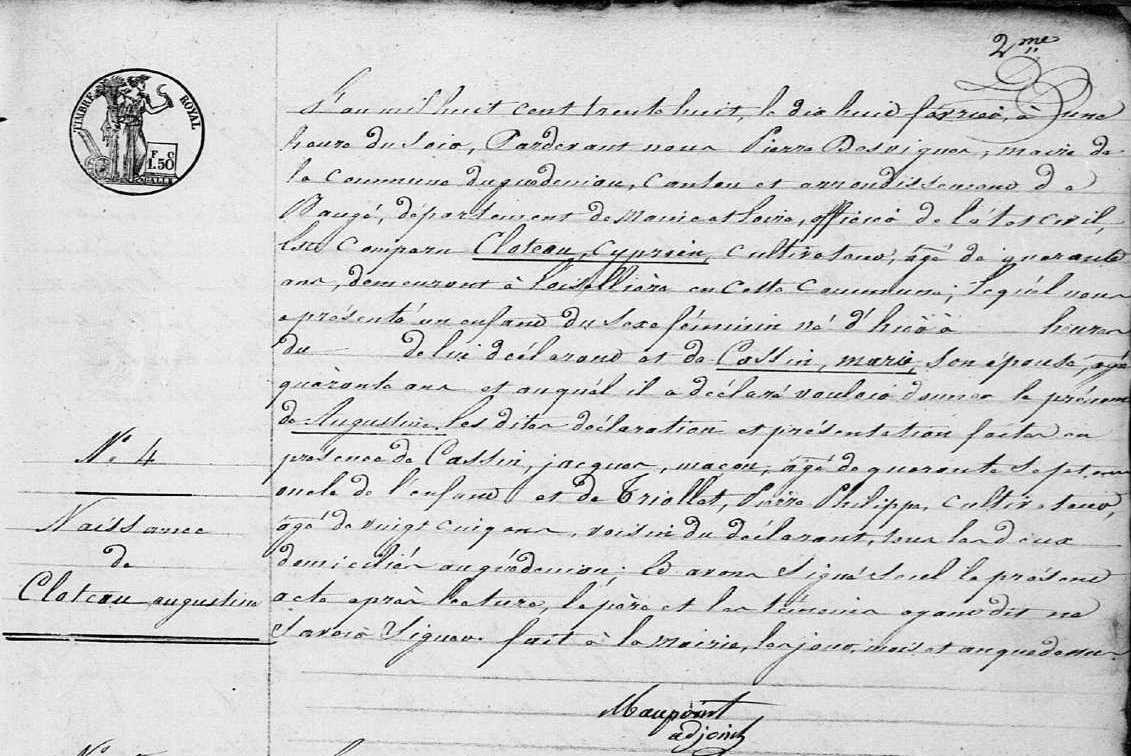 2me
TIMBRE ROYAL
F C
1.50
L'an mil huit cent trente huit, le dix huit février, à une
heure du soir, Pardevant nous Pierre Desvignes, maire de
la Commune duguédeniau, Canton et arrondissement de
Baugé, département de maine et loire, officier de l'état civil,
Est Comparu Cloteau, Cyprien, Cultivateur, âgé de quarante
ans, demeurant à loisellière en cette Commune; lequel nous
a présenté un enfant du sexe féminin né d'hier à heures
du de lui déclarant et de Cassin, marie, son épouse, agée
quarante ans et auquel il a déclaré vouloir donner le prénom
de Augustine, les dites déclaration et présentation faites en
présence de Cassin, jacques, maçon, âgé de quarante sept ans
oncle de l'enfant et de Triollet, Pierre Philippe, cultivateur,
âgé de vingt cinq ans, voisin du déclarant, tous les deux
domiciliés auguédeniau; Et avons Signé Seul le présent
acte après lecture, le père et les témoins ayant dit ne
Savoir Signer. fait à la mairie, les jour, mois et an que dessus
Maupoint
adjoint
N° 4
Naissance
de
Cloteau augustine